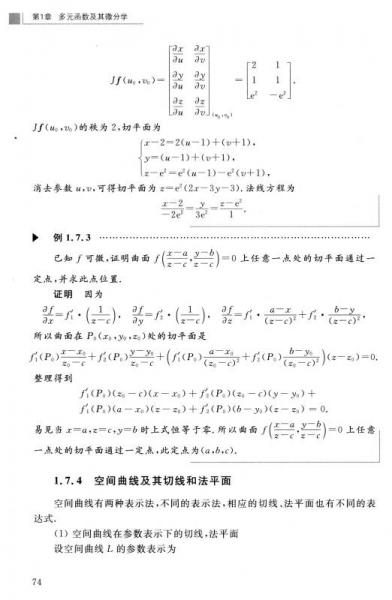 第1章 多元函数及其微分学
Jf(u₀,v₀)=[∂x/∂u ∂x/∂v; ∂y/∂u ∂y/∂v; ∂z/∂u ∂z/∂v](u₀,v₀)=[2 1; 1 1; e² −e²].
Jf(u₀,v₀)的秩为2,切平面为
{x−2=2(u−1)+(v+1),
y=(u−1)+(v+1),
z−e²=e²(u−1)−e²(v+1),
消去参数u,v,可得切平面为z=e²(2x−3y−3).法线方程为
(x−2)/(−2e²)=y/(3e²)=(z−e²)/1.
▶ 例1.7.3
已知f可微,证明曲面f((x−a)/(z−c),(y−b)/(z−c))=0上任意一点处的切平面通过一
定点,并求此点位置.
证明 因为
∂f/∂x=f′₁·(1/(z−c)), ∂f/∂y=f′₂·(1/(z−c)), ∂f/∂z=f′₁·(a−x)/(z−c)²+f′₂·(b−y)/(z−c)²,
所以曲面在P₀(x₀,y₀,z₀)处的切平面是
f′₁(P₀)(x−x₀)/(z₀−c)+f′₂(P₀)(y−y₀)/(z₀−c)+(f′₁(P₀)(a−x₀)/(z₀−c)²+f′₂(P₀)(b−y₀)/(z₀−c)²)(z−z₀)=0.
整理得到
f′₁(P₀)(z₀−c)(x−x₀)+f′₂(P₀)(z₀−c)(y−y₀)+
f′₁(P₀)(a−x₀)(z−z₀)+f′₂(P₀)(b−y₀)(z−z₀)=0.
易见当x=a,z=c,y=b时上式恒等于零.所以曲面f((x−a)/(z−c),(y−b)/(z−c))=0上任意
一点处的切平面通过一定点,此定点为(a,b,c).
1.7.4 空间曲线及其切线和法平面
空间曲线有两种表示法,不同的表示法,相应的切线、法平面也有不同的表
达式.
(1) 空间曲线在参数表示下的切线,法平面
设空间曲线L的参数表示为
74